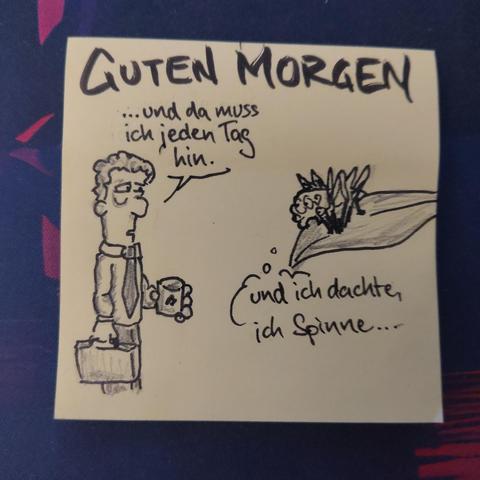 GUTEN MORGEN
...und da muss
ich jeden Tag
hin.
und ich dachte,
ich Spinne...